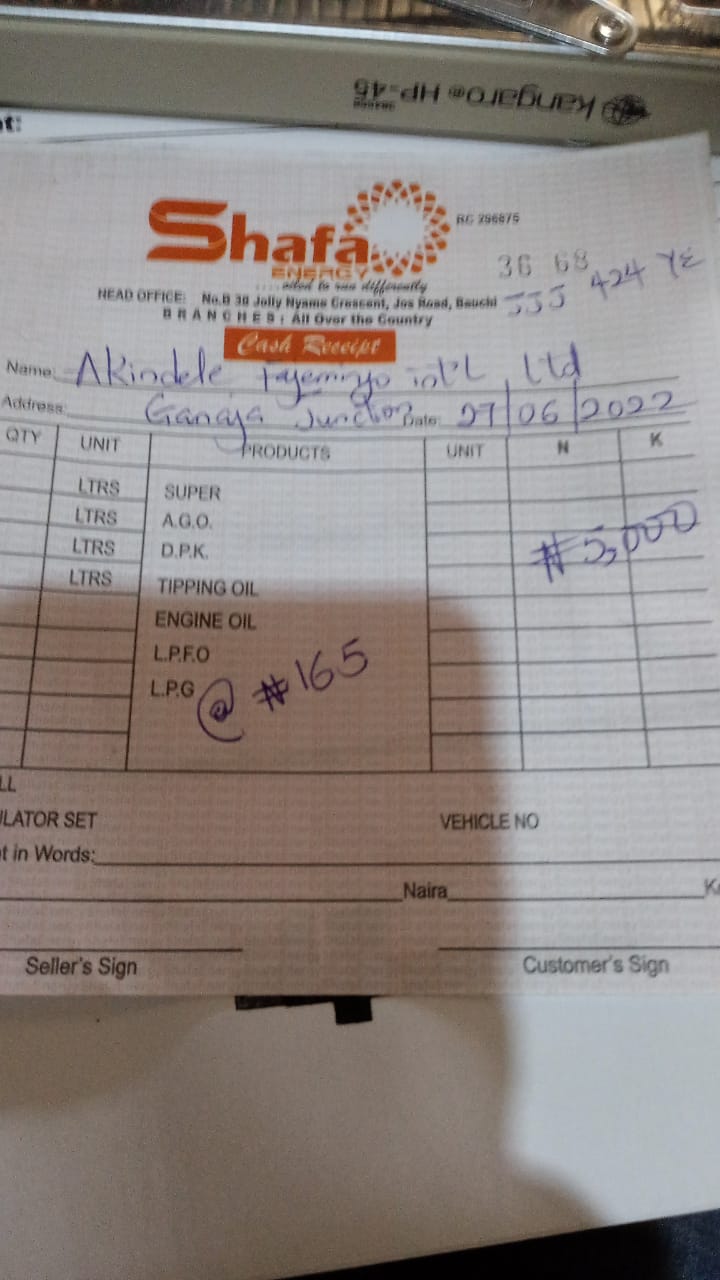 kangaro® HP-45
nt:
Shafa
ENERGY
RC 256875
....aded to run differently
36 68
JJJ 424 YE
HEAD OFFICE: No.B 30 Jolly Nyame Crescent, Jos Road, Bauchi
BRANCHES: All Over the Country
Cash Receipt
Name: Akindele Fayemiyo int'L Ltd
Address: Ganaja Junction Date: 27/06/2022
QTY UNIT PRODUCTS UNIT N K
LTRS SUPER
LTRS A.G.O.
LTRS D.P.K. ₦5,000
LTRS TIPPING OIL
ENGINE OIL
L.P.F.O
L.P.G @ ₦165
LL
ULATOR SET VEHICLE NO
t in Words:
Naira K
Seller's Sign Customer's Sign